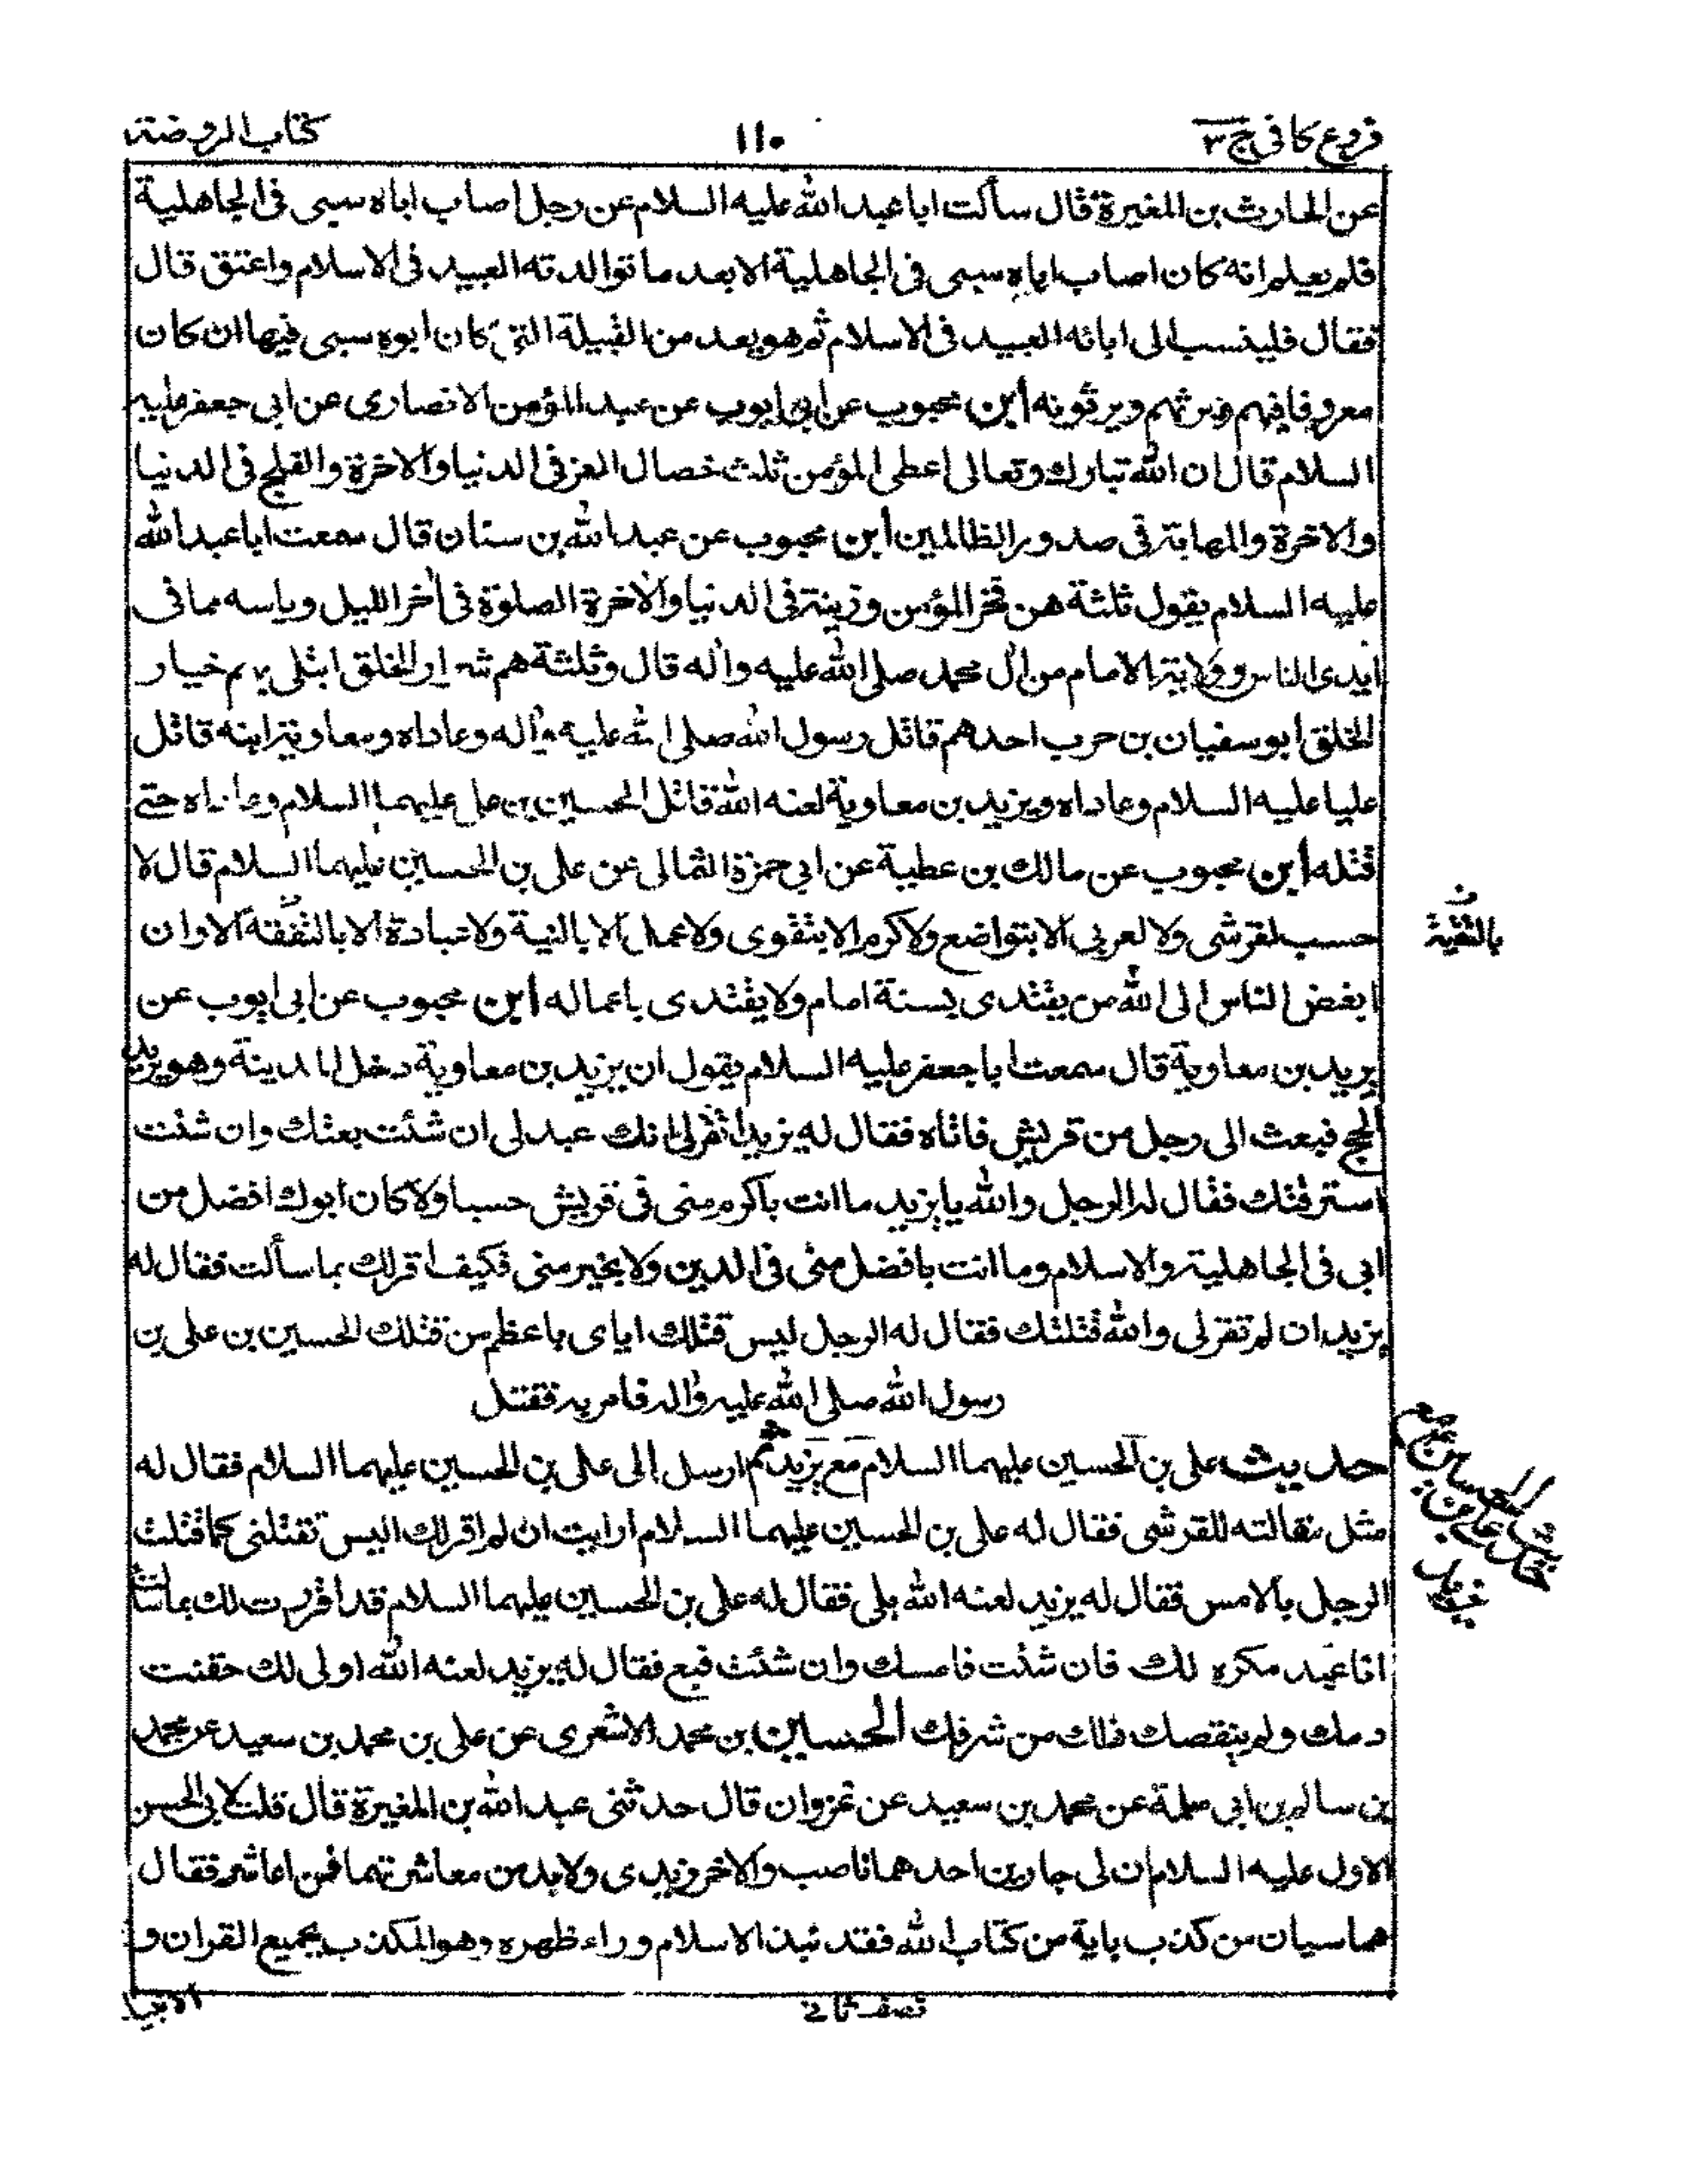 فروع کافی ج ۳
۱۱۰
کتاب الروضة
عن الحارث بن المغيرة قال سألت ابا عبد الله عليه السلام عن رجل اصاب اباه سبى فى الجاهلية
فلم يعلم انه كان اصاب اباه سبى فى الجاهلية الا بعد ما توالدته العبيد فى الاسلام واعتق قال
فقال فلينسب الى ابائه العبيد فى الاسلام ثم هو يعد من القبيلة التى كان ابوه سبى فيها ان كان
معروفا فيهم ويرثهم ويرثونه ابن محبوب عن ابى ايوب عن عبد المؤمن الانصارى عن ابى جعفر عليه
السلام قال ان الله تبارك وتعالى اعطى المؤمن ثلث خصال العز فى الدنيا والاخرة والفلج فى الدنيا
والاخرة والمهابة فى صدور الظالمين ابن محبوب عن عبد الله بن سنان قال سمعت ابا عبد الله
عليه السلام يقول ثلثة هن فخر المؤمن وزينة فى الدنيا والاخرة الصلوة فى اخر الليل وياسه مما فى
ايدى الناس وولاية الامام من ال محمد صلى الله عليه واله قال وثلثة هم شرار الخلق ابتلى بهم خيار
الخلق ابو سفيان بن حرب احدهم قاتل رسول الله صلى الله عليه واله وعاداه ومعاوية ابنه قاتل
عليا عليه السلام وعاداه ويزيد بن معاوية لعنه الله قاتل الحسين بن على عليهما السلام وعاداه حتى
قتله ابن محبوب عن مالك بن عطية عن ابى حمزة الثمالى عن على بن الحسين عليهما السلام قال لا
حسب لقرشى ولا لعربى الا بتواضع ولا كرم الا بتقوى ولا عمل الا بالنية ولا عبادة الا بالتفقه الا وان
بالتقية
ابغض الناس الى الله من يقتدى بسنة امام ولا يقتدى باعماله ابن محبوب عن ابى ايوب عن
بريد بن معاوية قال سمعت ابا جعفر عليه السلام يقول ان يزيد بن معاوية دخل المدينة وهو يريد
الحج فبعث الى رجل من قريش فاتاه فقال له يزيد اتقر لى انك عبد لى ان شئت بعتك وان شئت
استرقتك فقال له الرجل والله يا يزيد ما انت باكرم منى فى قريش حسبا ولا كان ابوك افضل من
ابى فى الجاهلية والاسلام وما انت بافضل منى فى الدين ولا بخير منى فكيف اقر لك بما سألت فقال له
يزيد ان لم تقر لى والله قتلتك فقال له الرجل ليس قتلك اياى باعظم من قتلك الحسين بن على بن
رسول الله صلى الله عليه واله فامر به فقتل
حديث على بن الحسين عليهما السلام مع يزيد ثم ارسل الى على بن الحسين عليهما السلام فقال له
مثل مقالته للقرشى فقال له على بن الحسين عليهما السلام ارايت ان لم اقر لك اليس تقتلنى كما قتلت
الرجل بالامس فقال له يزيد لعنه الله بلى فقال له على بن الحسين عليهما السلام قد اقررت لك بما سألت
انا عبد مكره لك فان شئت فامسك وان شئت فبع فقال له يزيد لعنه الله اولى لك حقنت
دمك ولم ينقصك ذلك من شرفك الحسين بن محمد الاشعرى عن على بن محمد بن سعيد عن محمد
بن سالم بن ابى سلمة عن محمد بن سعيد عن غزوان قال حدثنى عبد الله بن المغيرة قال قلت لابى الحسن
الاول عليه السلام ان لى جارين احدهما ناصب والاخر زيدى ولا بد من معاشرتهما فمن اعاشر فقال
هما سيان من كذب باية من كتاب الله فقد نبذ الاسلام وراء ظهره وهو المكذب بجميع القران و
الانبياء
نصف ثانی